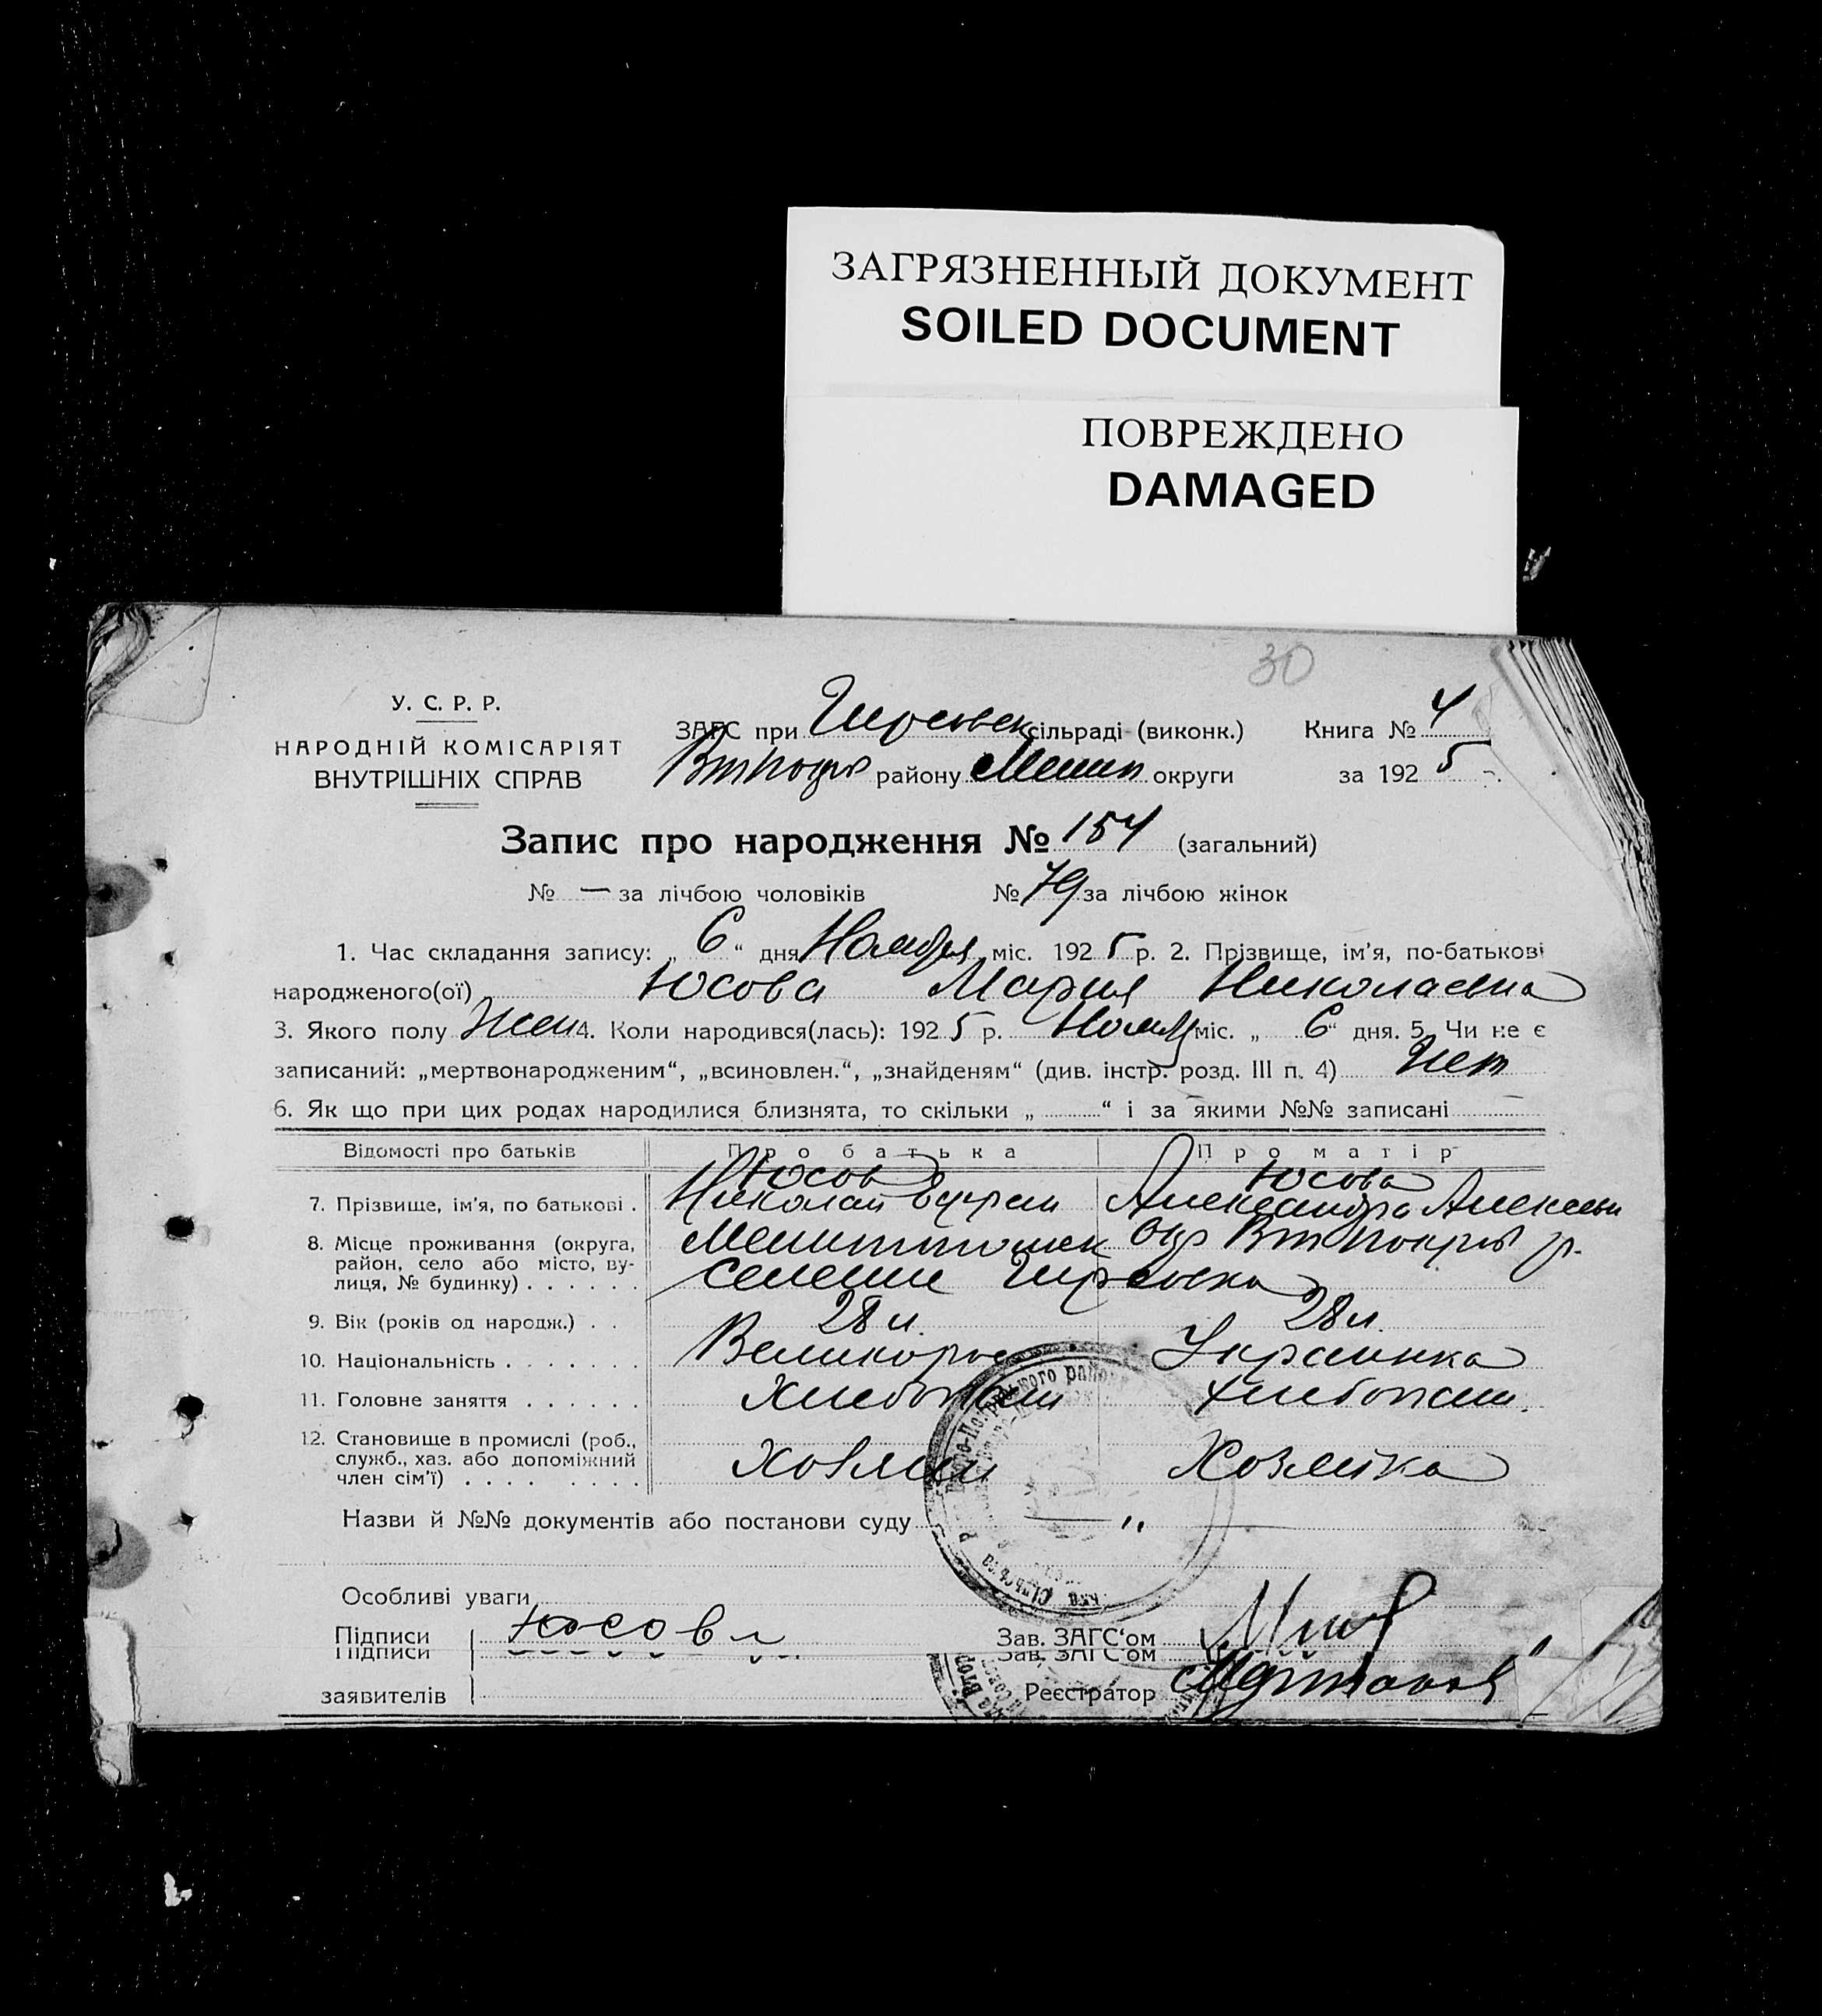 ЗАГРЯЗНЕННЫЙ ДОКУМЕНТ
SOILED DOCUMENT
ПОВРЕЖДЕНО
DAMAGED
30
У. С. Р. Р.
НАРОДНІЙ КОМІСАРІЯТ
ВНУТРІШНІХ СПРАВ
ЗАГС при сільраді (виконк.) Книга № 4
району округи за 192 5
Запис про народження № 154 (загальний)
№ — за лічбою чоловіків № 79 за лічбою жінок
1. Час складання запису: „ 6 “ дня Ноября міс. 192 5 р. 2. Прізвище, ім’я, по-батькові
народженого(ої) Юсова Мария Николаевна
3. Якого полу Жен 4. Коли народився(лась): 192 5 р. міс. „ 6 “ дня. 5. Чи не є
записаний: „мертвонародженим“, „всиновлен.“, „знайденям“ (див. інстр. розд. III п. 4) Нет
6. Як що при цих родах народилися близнята, то скільки „ “ і за якими №№ записані
Відомості про батьків Про батька Про матір
Юсов Юсова
7. Прізвище, ім’я, по батькові . Николай Александра
8. Місце проживання (округа, район, село або місто, вулиця, № будинку) . . . . . . окр р.
селение
9. Вік (років од народж.) . . 28 л. 28 л.
10. Національність . . . . . . . Великорос Украинка
11. Головне заняття . . . . . . Хлебопаш Хлебопаш.
12. Становище в промислі (роб., служб., хаз. або допоміжний член сім’ї) . . . . . . . . Хозяин Хозяйка
Назви й №№ документів або постанови суду — „
Особливі уваги
Підписи Юсов Зав. ЗАГС‘ом
Підписи Зав. ЗАГС‘ом
заявителів Реєстратор